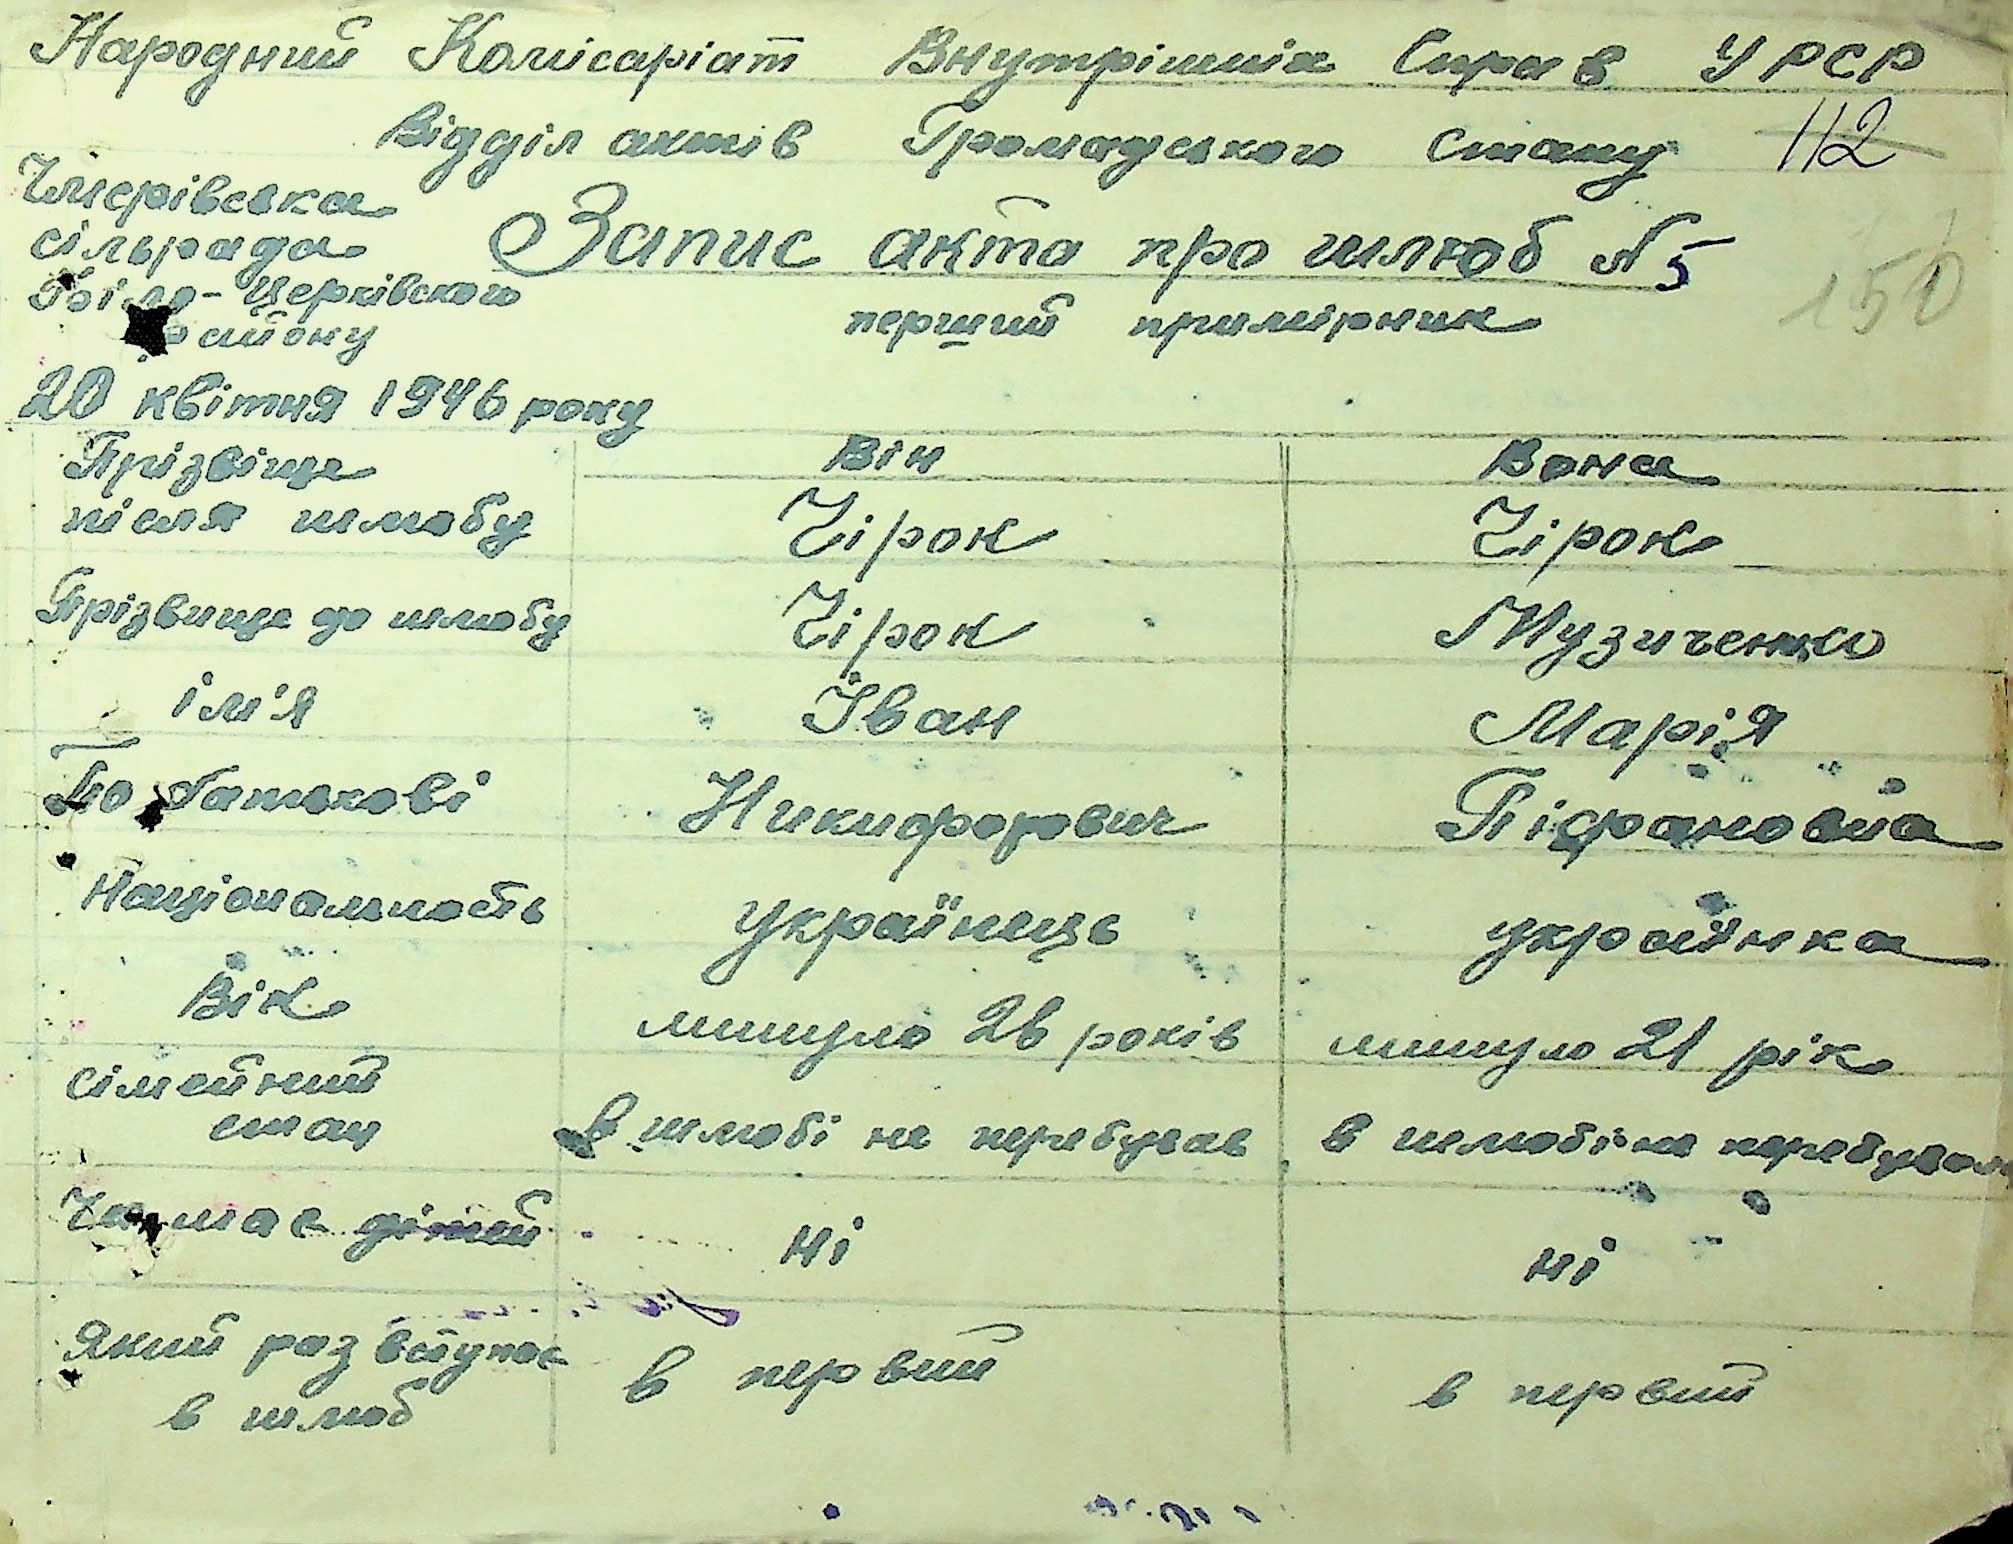 Народний Комісаріат Внутрішніх Справ УРСР
Відділ актів Громадського Стану 112
Чмерівська
сільрада
Біло-Церківского
району
Запис акта про шлюб № 5
150
перший примірник
20 квітня 1946 року
Він Вона
Прізвіще
після шлюбу Чірок Чірок
Прізвище до шлюбу Чірок Музиченко
ім'я Іван Марія
По Батькові Никифорович
Національность українець українка
Вік минуло 26 років минуло 21 рік
Сімейний
стан в шлюбі не перебував в шлюбі не перебувала
Чи має дітей ні ні
Який раз вступає
в шлюб в первий в первий